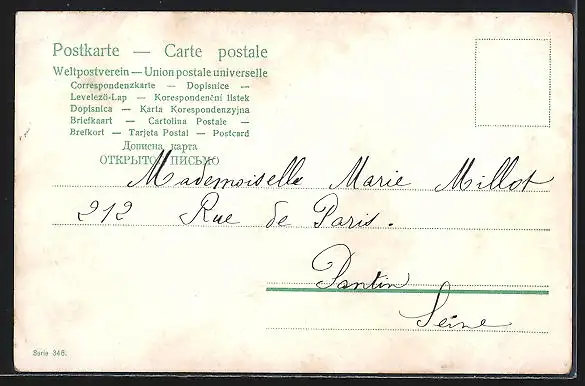 Postkarte — Carte postale
Weltpostverein — Union postale universelle
Correspondenzkarte — Dopisnice —
Levelező-Lap — Korespondenční listek
Dopisnica — Karta Korespondenzyjna
Briefkaart — Cartolina Postale —
Brefkort — Tarjeta Postal — Postcard
Дописна карта
ОТКРЫТОЕ ПИСЬМО
Mademoiselle Marie Millot
212 Rue de Paris.
Pantin
Seine
Serie 346.